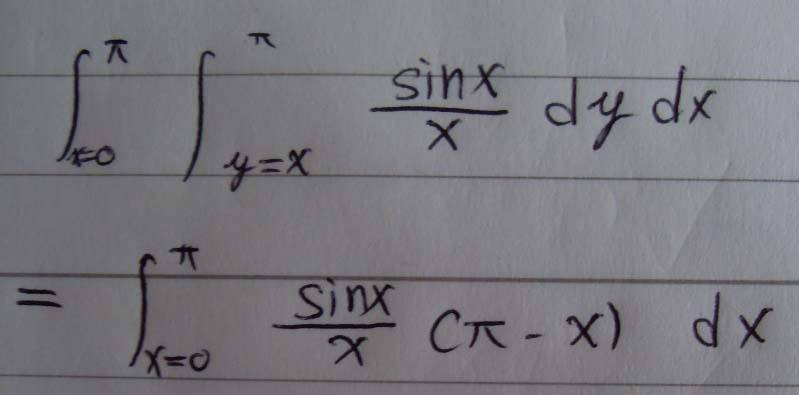 ∫_{x=0}^{π} ∫_{y=x}^{π} \frac{sinx}{x} dy dx
= ∫_{x=0}^{π} \frac{sinx}{x} (π - x) dx